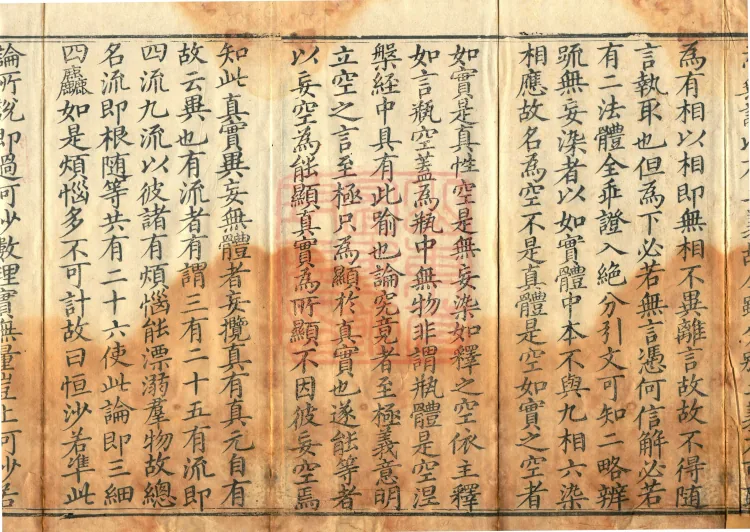 為有相以相即無相不異離言故故不得随
言執取也但為下必若無言憑何信解必若
有二法體全乖證入絶分引文可知二略辨
䟽無妄染者以如實體中本不與九相六染
相應故名為空不是真體是空如實之空者
如實是真性空是無妄染如釋之空依主釋
如言瓶空蓋為瓶中無物非謂瓶體是空涅
槃经中具有此喻也論究竟者至極義意明
立空之言至極只為顯於真實也遂能等者
以妄空為能顯真實為所顯不因彼妄空焉
知此真實異妄無體者妄攬真有真元自有
故云異也有流者有謂三有二十五有流即
四流九流以彼諸有煩惱能漂溺羣物故總
名流即根随等共有二十六使此論即三細
四麤如是煩惱多不可計故曰恒沙若準此
論所說即過可沙數理實無量豈止可沙若